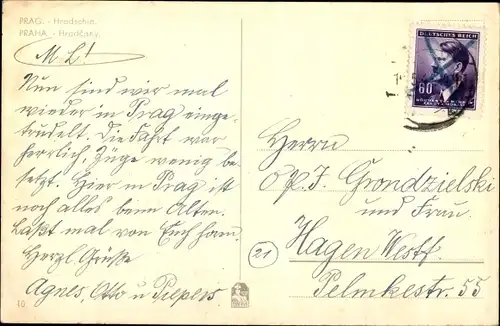 PRAG. - Hradschin.
PRAHA - Hradčany.
M. L!
Nun sind wir mal
wieder in Prag einge-
trudelt. Die Fahrt war
herrlich, Züge wenig be-
setzt. Hier in Prag ist
noch alles beim Alten.
Laßt mal von Euch hören.
Herzl. Grüße
Agnes, Otto u Piepers
10
DEUTSCHES REICH
60
Herrn
Grondzielski
und Frau.
21
Hagen Westf.
Pelmkestr. 55